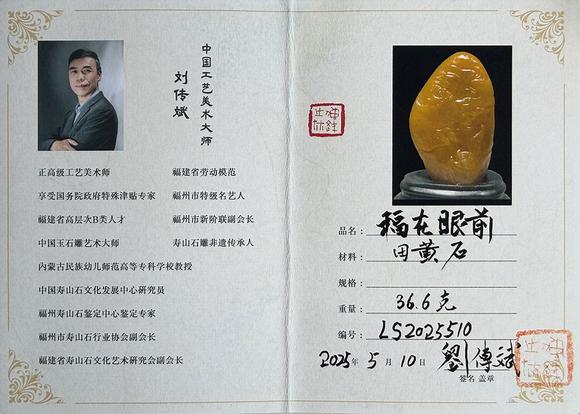 中国工艺美术大师
刘传斌
正高级工艺美术师
享受国务院政府特殊津贴专家
福建省高层次B类人才
中国玉石雕艺术大师
内蒙古民族幼儿师范高等专科学校教授
中国寿山石文化发展中心研究员
福州寿山石鉴定中心鉴定专家
福州市寿山石行业协会副会长
福建省寿山石文化艺术研究会副会长
福建省劳动模范
福州市特级名艺人
福州市新阶联副会长
寿山石雕非遗传承人
品名：福在眼前
材料：田黄石
规格：
重量：36.6克
编号：LS2025510
2025年5月10日 劉傳斌
签名 盖章